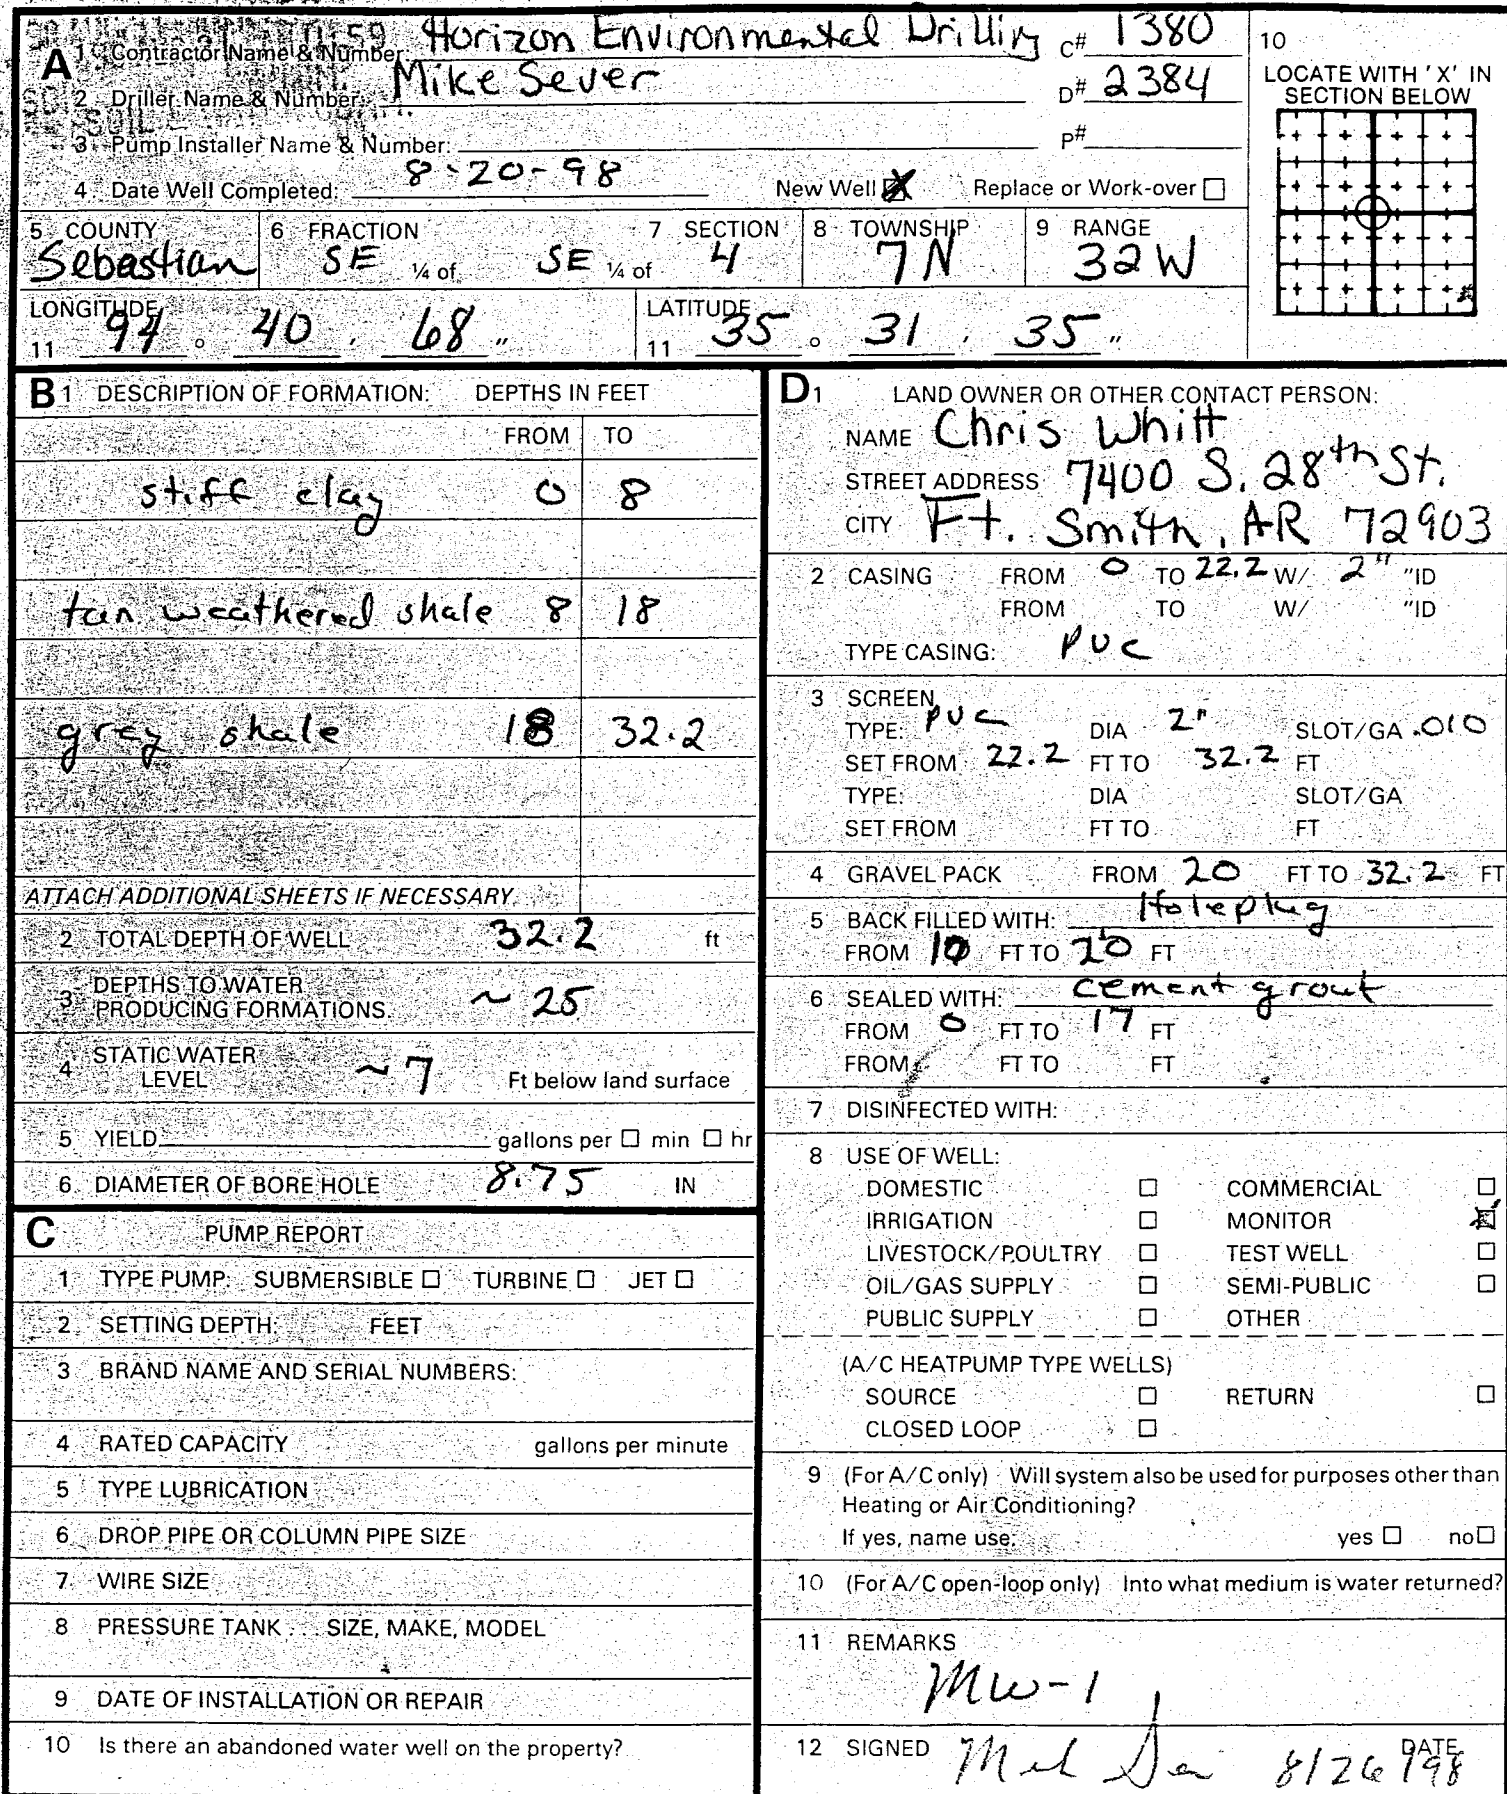 A 1 Contractor Name & Number: Horizon Environmental Drilling C# 1380
2 Driller Name & Number: Mike Sever D# 2384
3 Pump Installer Name & Number: P#
4 Date Well Completed: 8-20-98 New Well Replace or Work-over
10
LOCATE WITH 'X' IN
SECTION BELOW
5 COUNTY 6 FRACTION 7 SECTION 8 TOWNSHIP 9 RANGE
Sebastian SE ¼ of SE ¼ of 4 7N 32W
LONGITUDE LATITUDE
11 94 ° 40 ' 68 " 11 35 ° 31 ' 35 "
B 1 DESCRIPTION OF FORMATION: DEPTHS IN FEET
FROM TO
stiff clay 0 8
tan weathered shale 8 18
grey shale 18 32.2
ATTACH ADDITIONAL SHEETS IF NECESSARY.
2 TOTAL DEPTH OF WELL 32.2 ft
3 DEPTHS TO WATER
PRODUCING FORMATIONS ~25
4 STATIC WATER
LEVEL ~7 Ft below land surface
5 YIELD gallons per min hr
6 DIAMETER OF BORE HOLE 8.75 IN
C PUMP REPORT
1 TYPE PUMP: SUBMERSIBLE TURBINE JET
2 SETTING DEPTH: FEET
3 BRAND NAME AND SERIAL NUMBERS:
4 RATED CAPACITY gallons per minute
5 TYPE LUBRICATION
6 DROP PIPE OR COLUMN PIPE SIZE
7 WIRE SIZE
8 PRESSURE TANK . . . SIZE, MAKE, MODEL
9 DATE OF INSTALLATION OR REPAIR
10 Is there an abandoned water well on the property?
D 1 LAND OWNER OR OTHER CONTACT PERSON:
NAME Chris Whitt
STREET ADDRESS 7400 S. 28th St.
CITY Ft. Smith, AR 72903
2 CASING FROM 0 TO 22.2 W/ 2" "ID
FROM TO W/ "ID
TYPE CASING: PVC
3 SCREEN
TYPE: PVC DIA 2" SLOT/GA .010
SET FROM 22.2 FT TO 32.2 FT
TYPE: DIA SLOT/GA
SET FROM FT TO FT
4 GRAVEL PACK FROM 20 FT TO 32.2 FT
5 BACK FILLED WITH: Holeplug
FROM FT TO 20 FT
6 SEALED WITH: cement grout
FROM 0 FT TO 17 FT
FROM FT TO FT
7 DISINFECTED WITH:
8 USE OF WELL:
DOMESTIC COMMERCIAL
IRRIGATION MONITOR
LIVESTOCK/POULTRY TEST WELL
OIL/GAS SUPPLY SEMI-PUBLIC
PUBLIC SUPPLY OTHER
(A/C HEATPUMP TYPE WELLS)
SOURCE RETURN
CLOSED LOOP
9 (For A/C only) Will system also be used for purposes other than
Heating or Air Conditioning?
If yes, name use: yes no
10 (For A/C open-loop only) Into what medium is water returned?
11 REMARKS
MW-1
12 SIGNED DATE
8/26/98